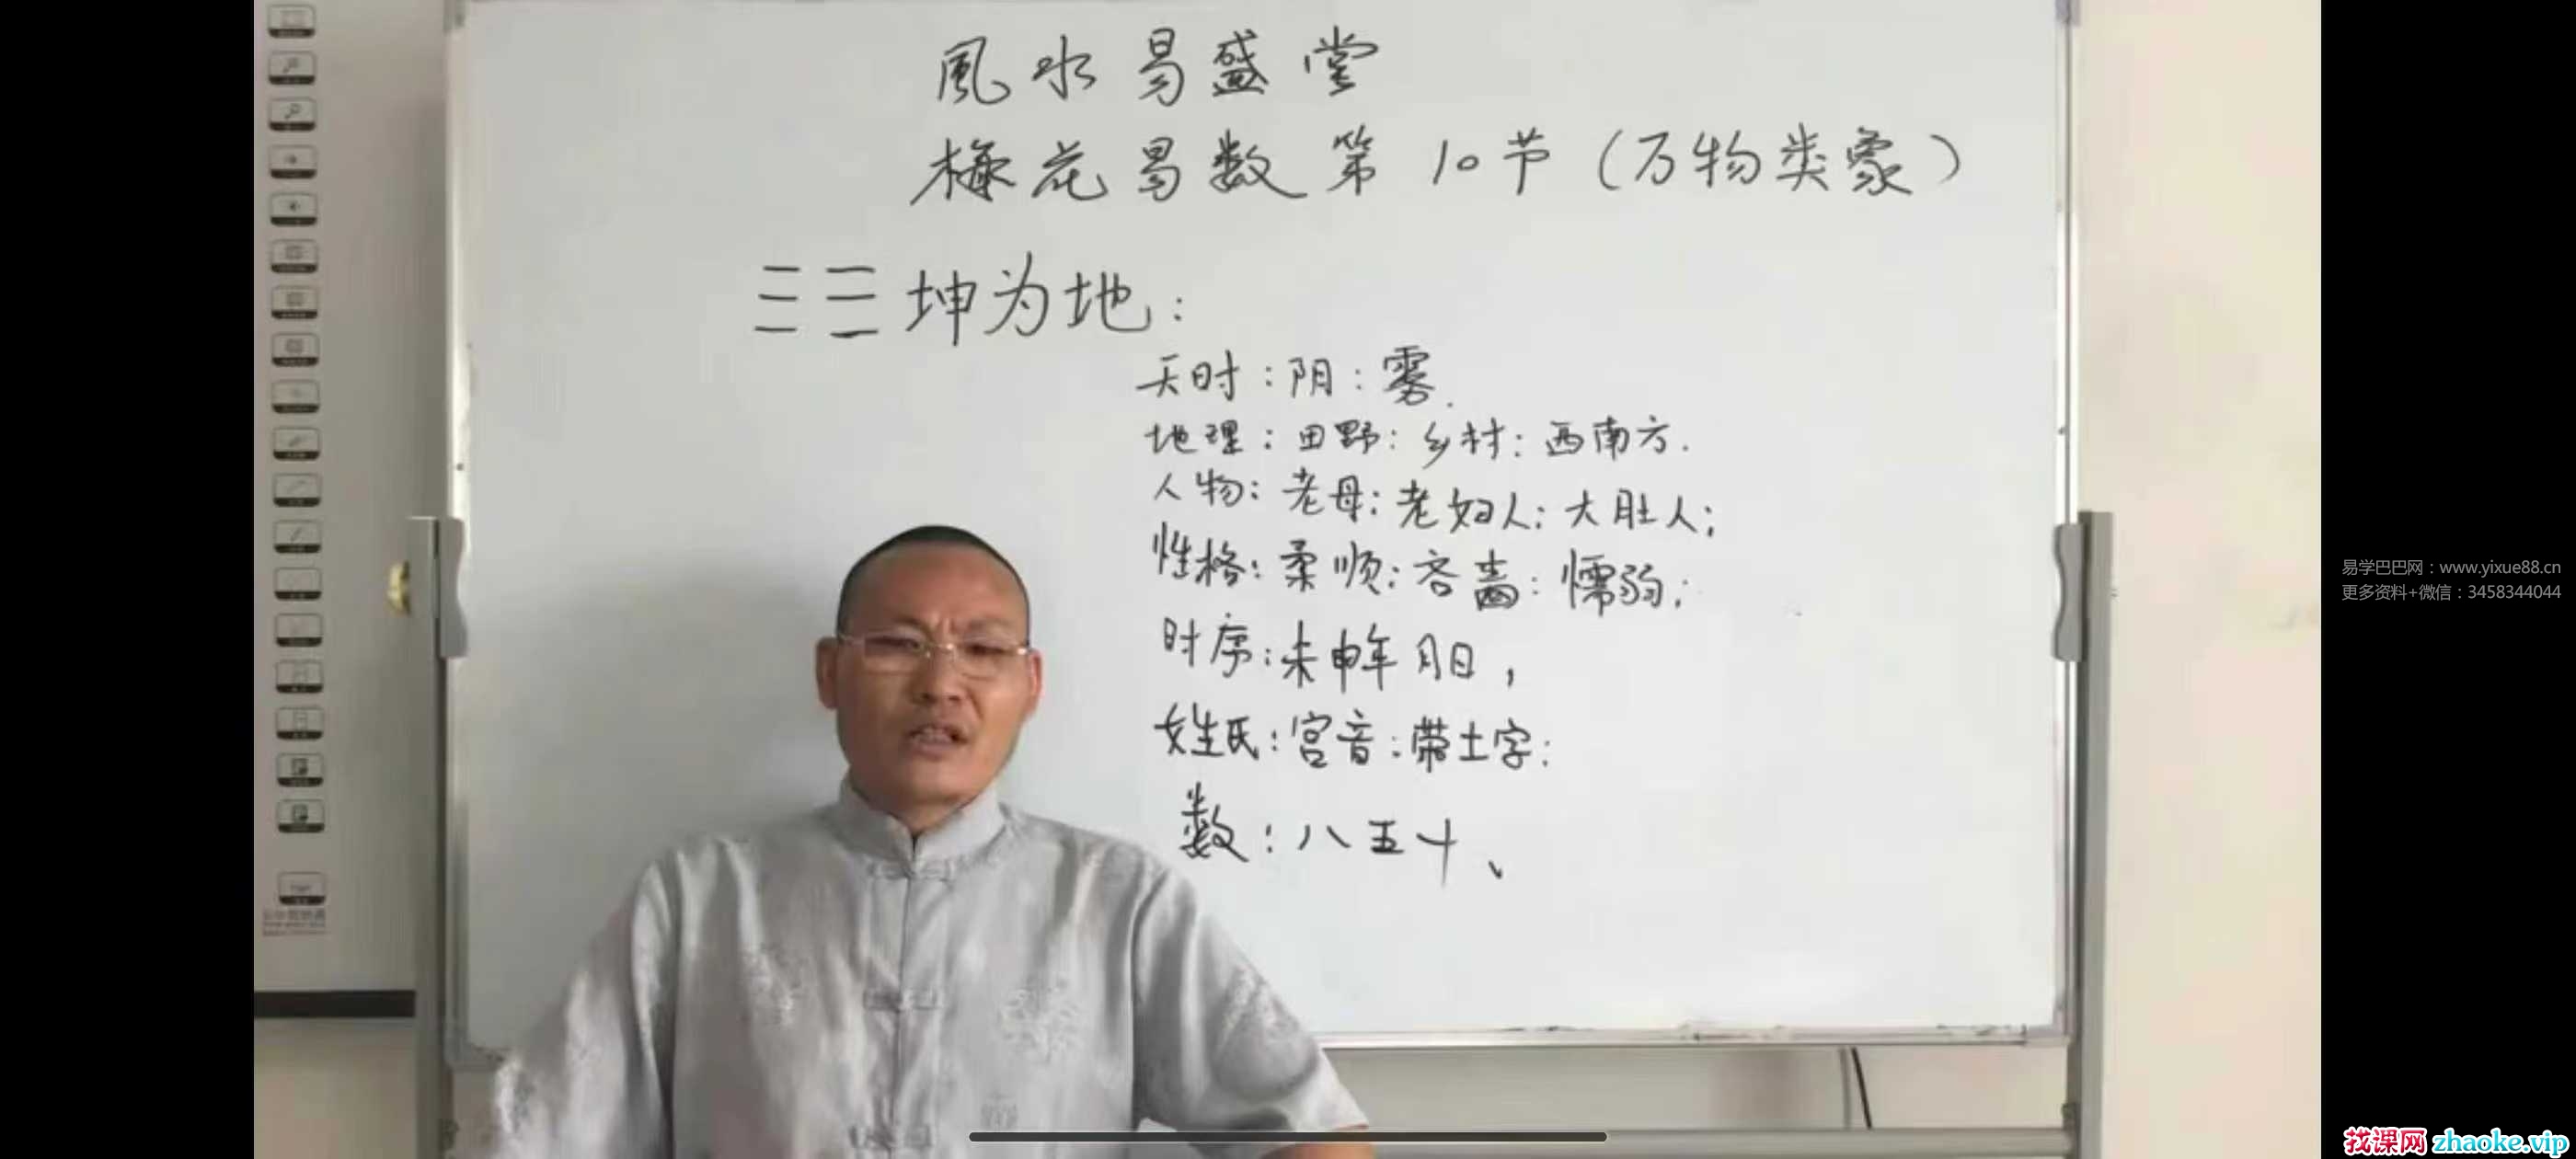 風水易盛堂
梅花易数第10节(万物类象)
坤为地:
天时:阴:雾.
地理:田野:乡村:西南方.
人物:老母:老妇人:大肚人;
性格:柔顺:吝啬:懦弱;
时序:未申年月日,
姓氏:宫音:带土字:
数:八五十、
易学巴巴网:www.yixue88.cn
更多资料+微信:3458344044
找课网 zhaoke.vip